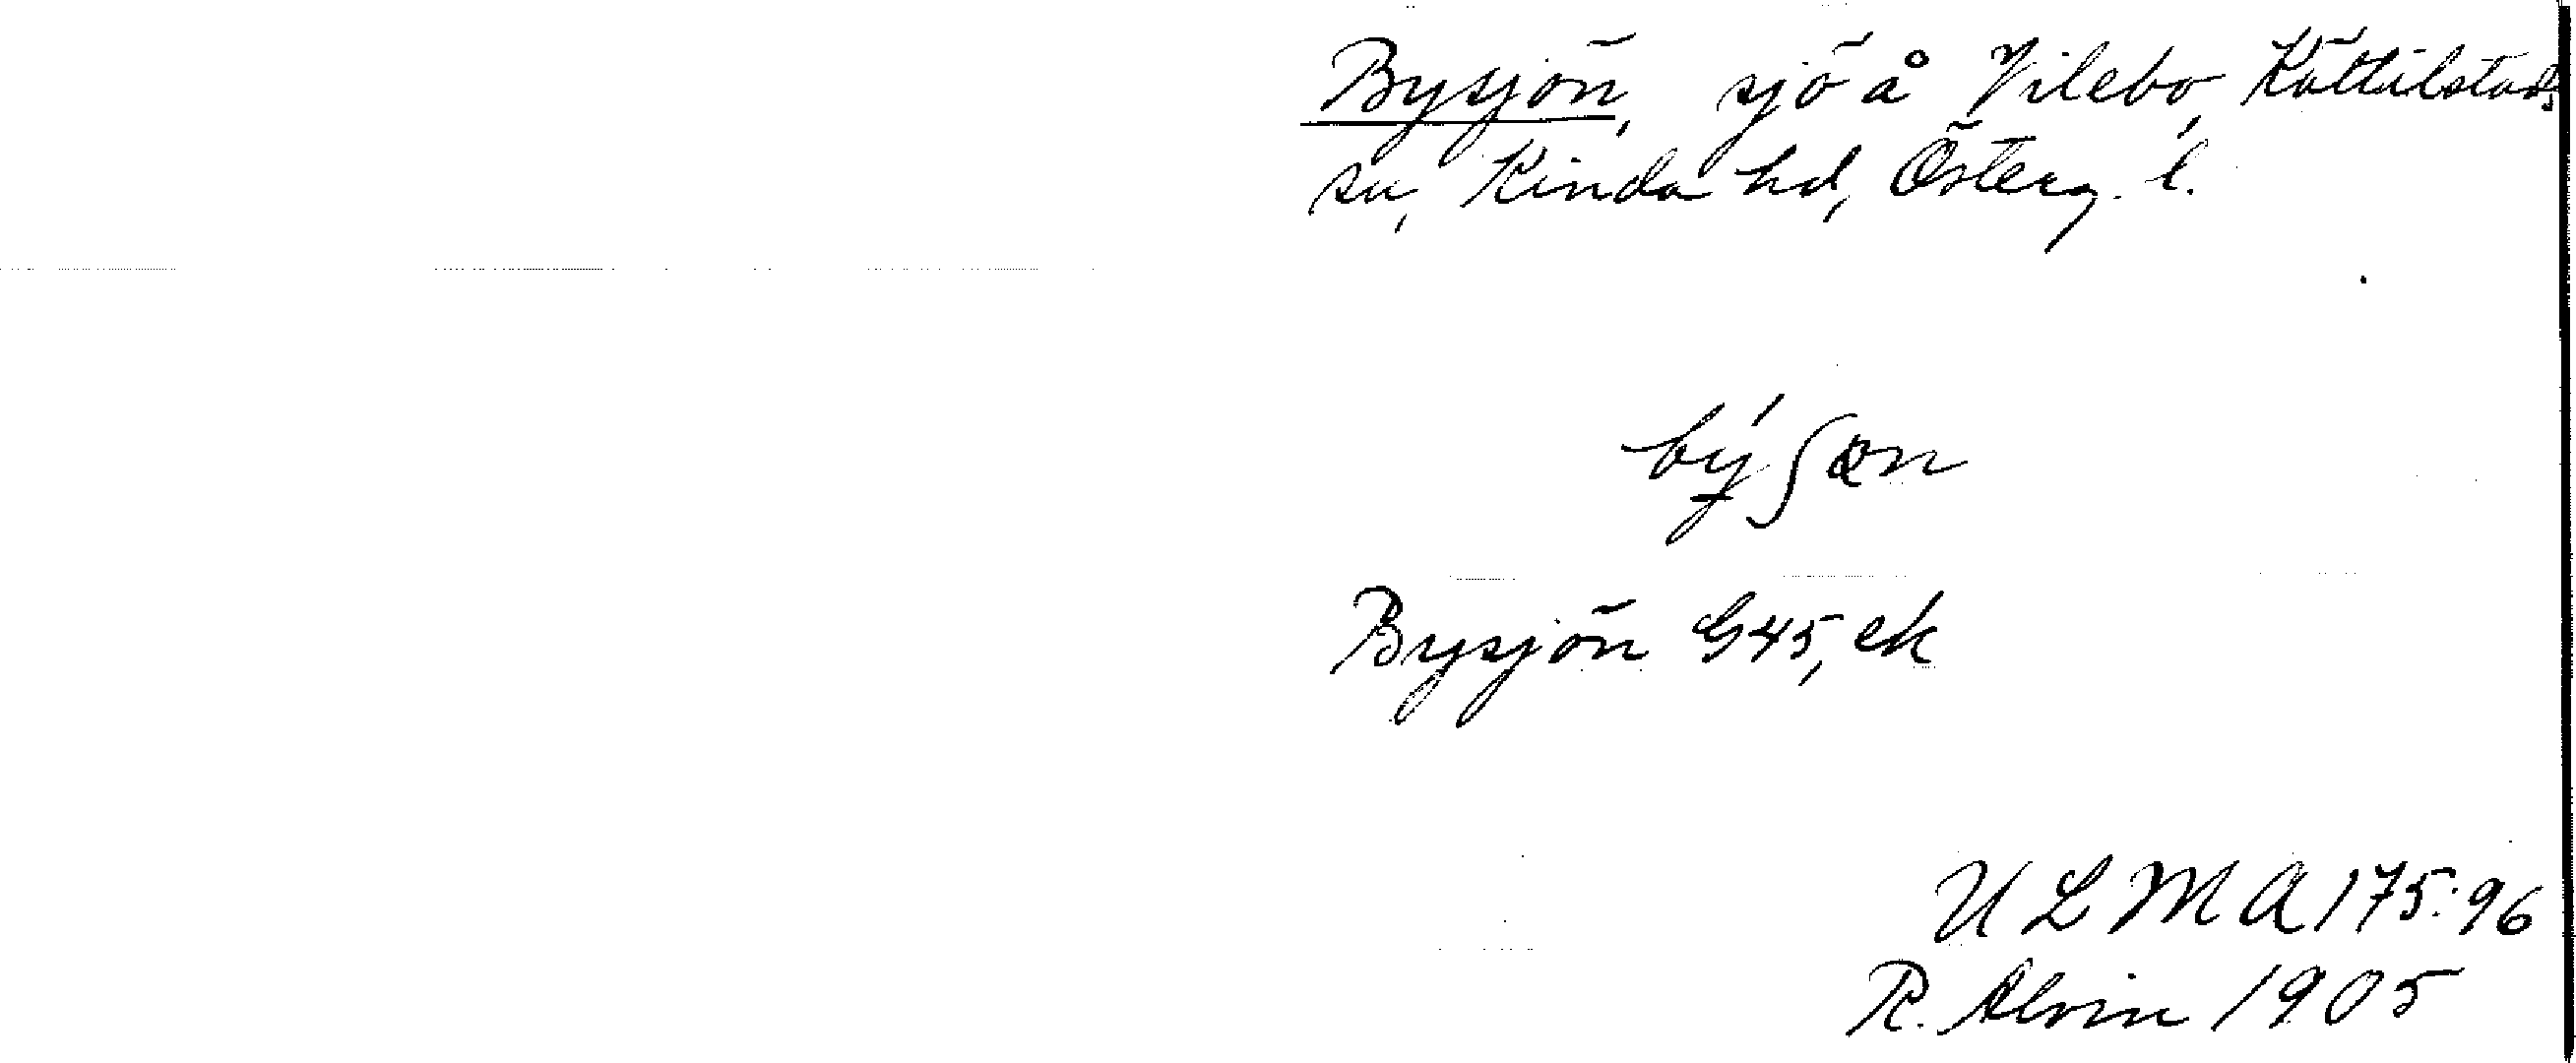 Bysjön, sjö å Vilebo, Kättilstads
sn, Kinda hd, Österg. l.
bý ʃɷn
Bysjön G45, ek
ULMA 175:96
R. Alvin 1905